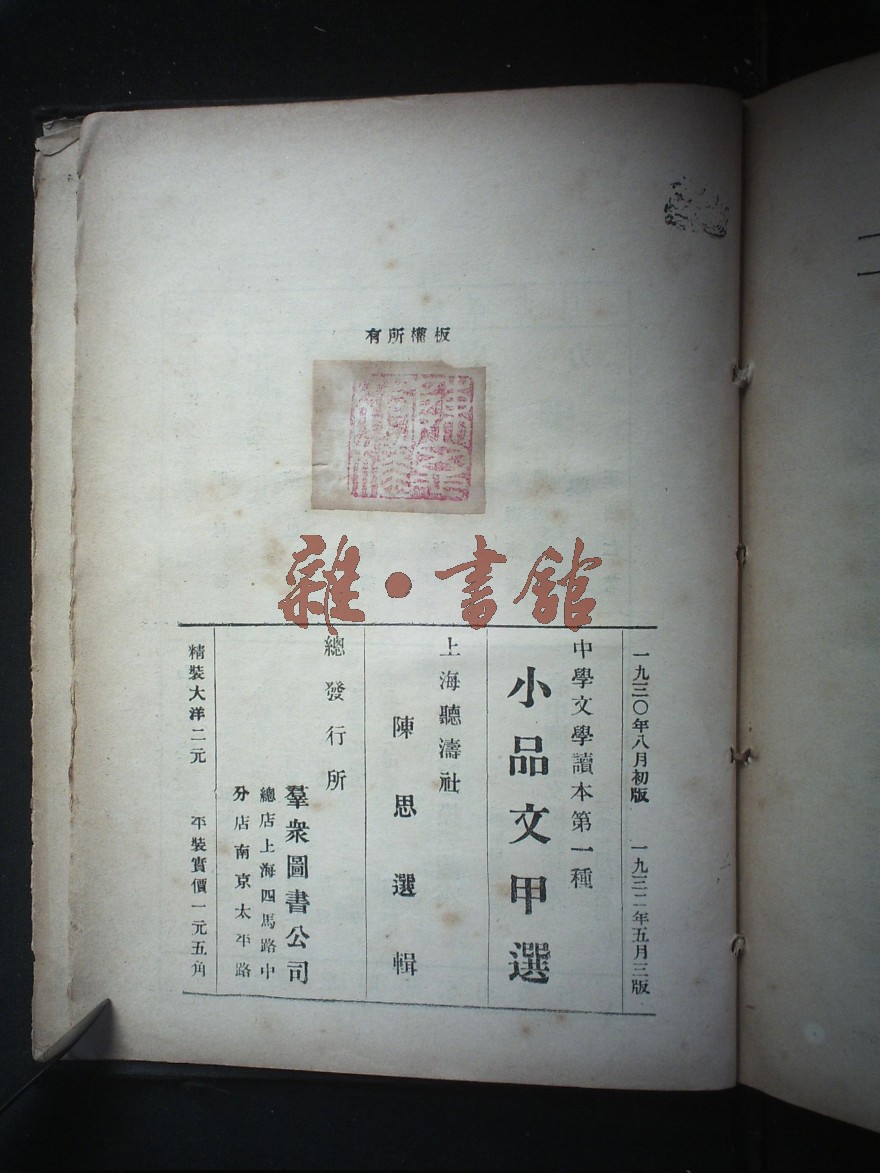 板權所有
雜·書館
一九三〇年八月初版 一九三二年五月三版
中學文學讀本第一種
小品文甲選
上海聽濤社
陳思選輯
總發行所
羣衆圖書公司
總店上海四馬路中
分店南京太平路
精裝大洋二元 平裝實價一元五角